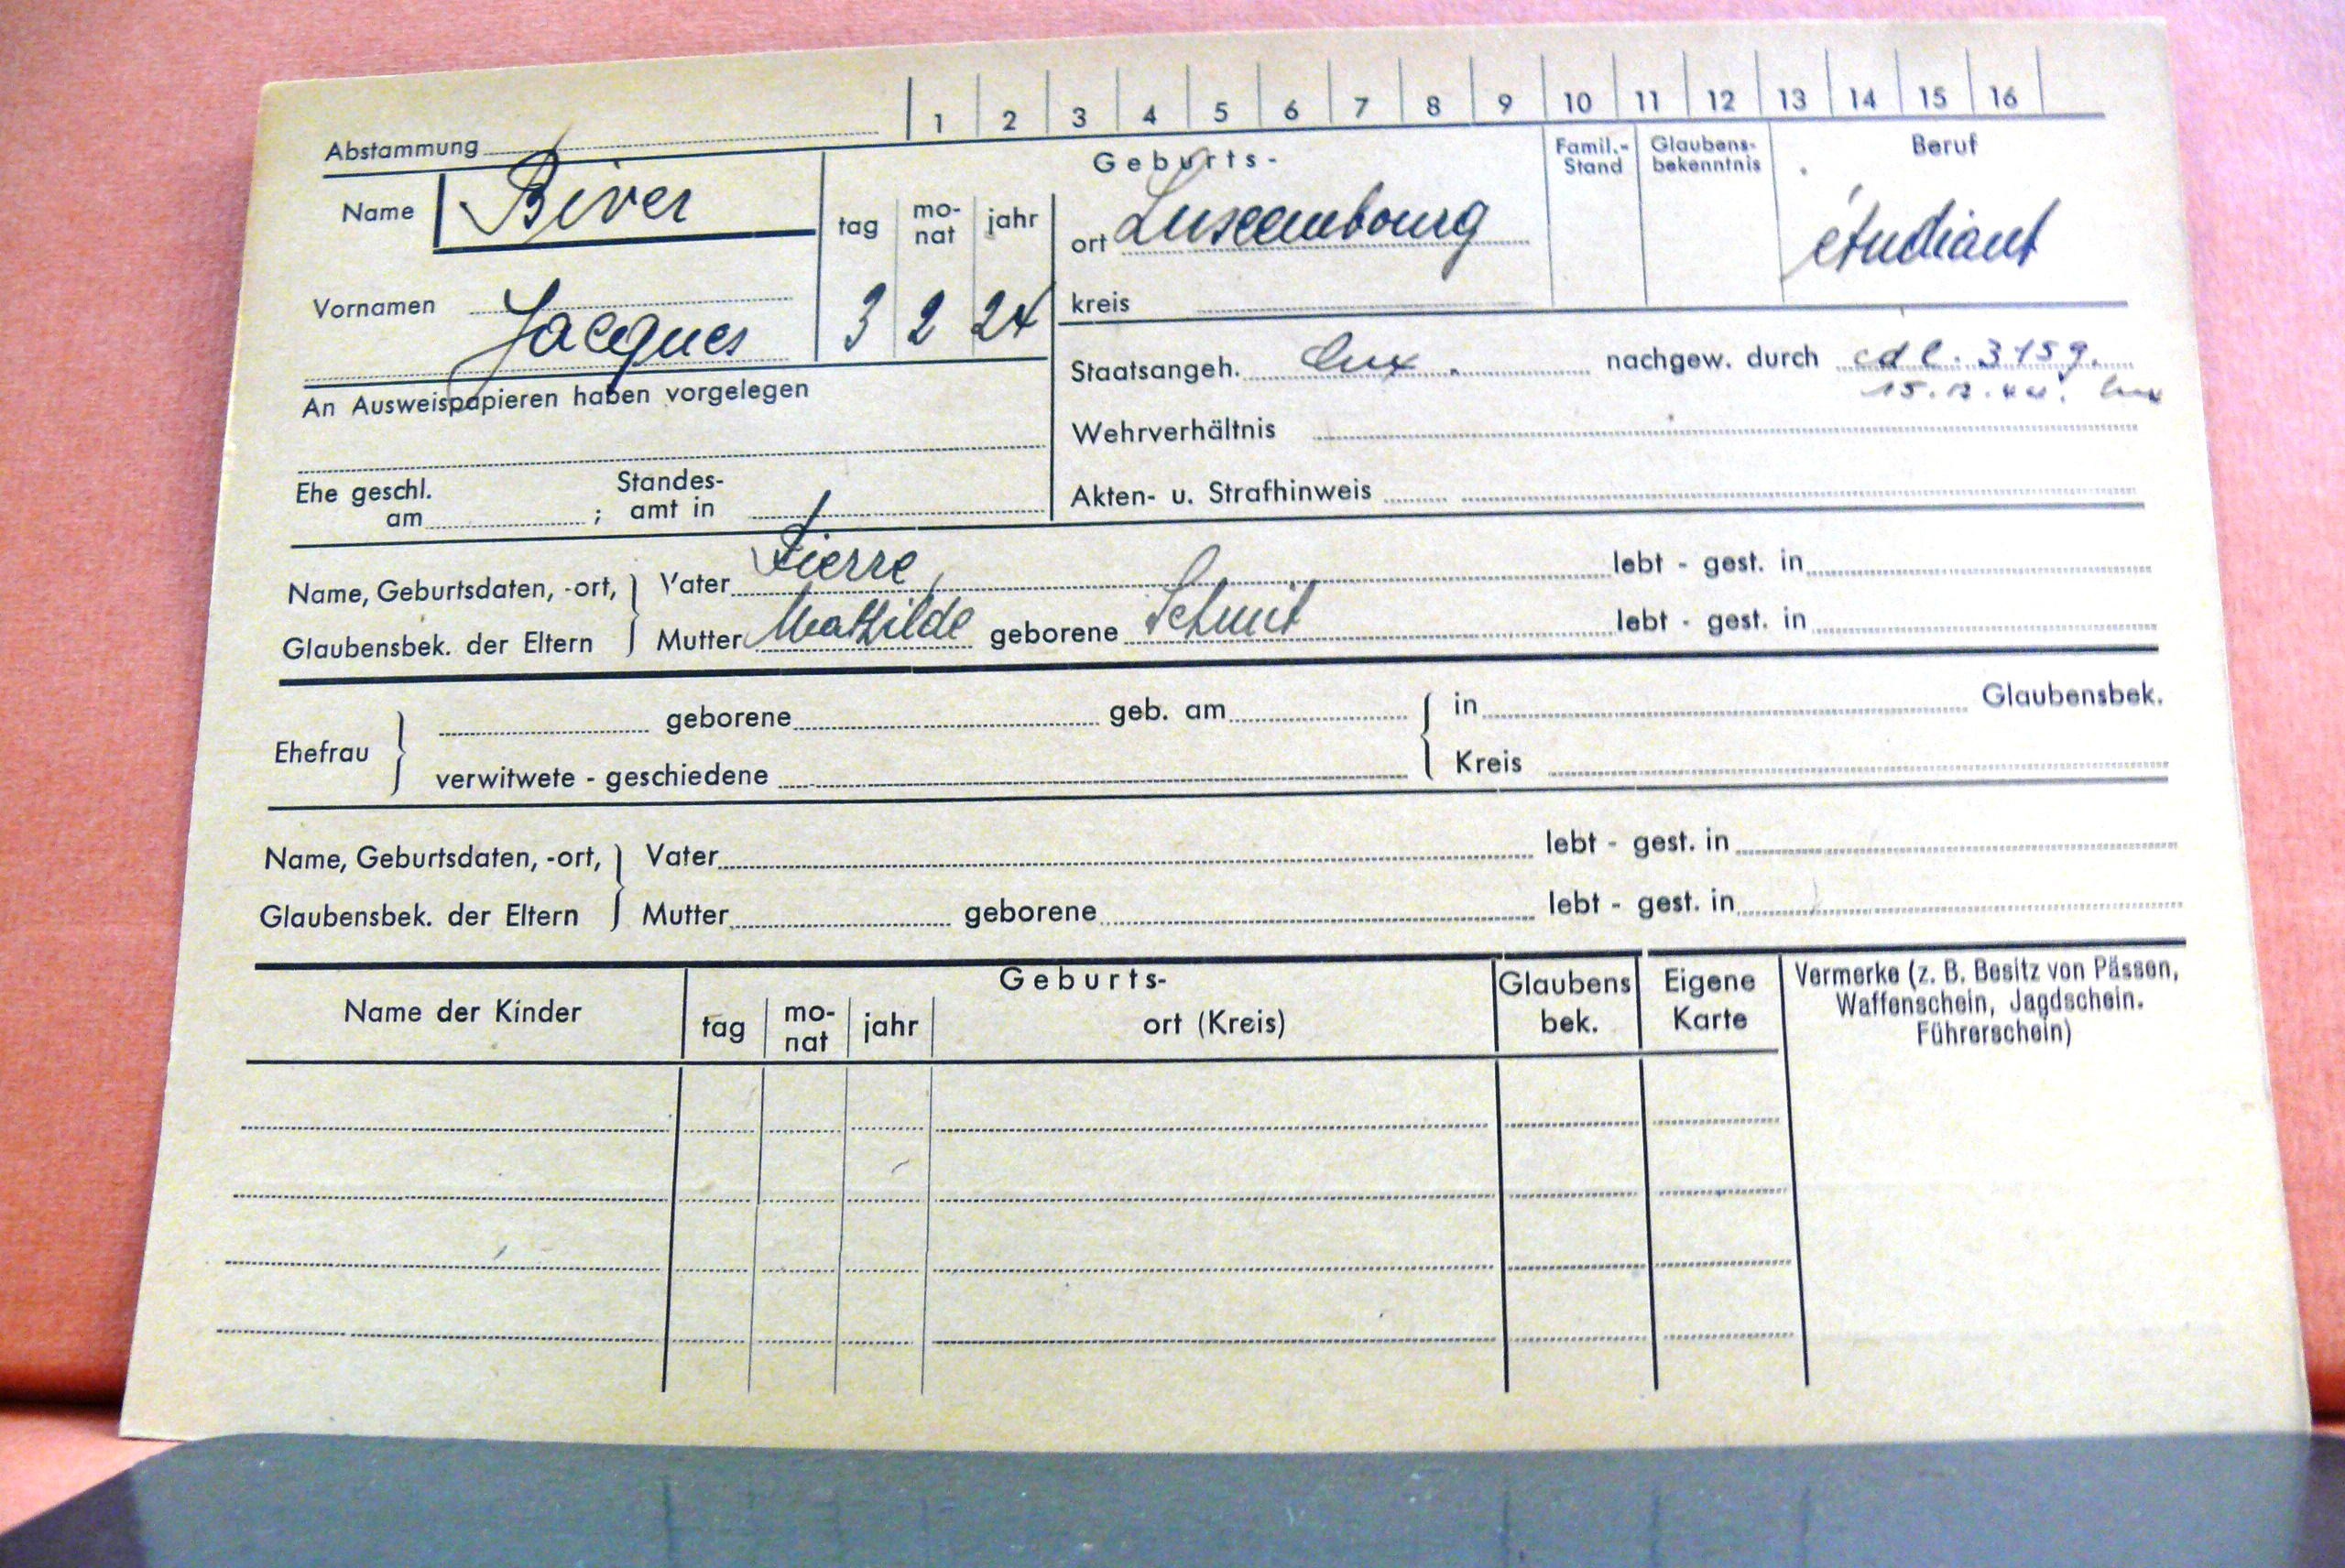 1 2 3 4 5 6 7 8 9 10 11 12 13 14 15 16
Abstammung
Name Biver
Geburts-
Famil.-Stand
Glaubens-bekenntnis
Beruf
tag mo-nat jahr
ort Luxembourg
étudiant
Vornamen Jacques
3 2 24
kreis
Staatsangeh. lux. nachgew. durch cdl. 3159.
15.12.44. lux
An Ausweispapieren haben vorgelegen
Wehrverhältnis
Ehe geschl. am ; Standes-amt in
Akten- u. Strafhinweis
Name, Geburtsdaten, -ort, Vater Pierre lebt - gest. in
Glaubensbek. der Eltern Mutter Mathilde geborene Schmit lebt - gest. in
Ehefrau geborene geb. am in Glaubensbek.
verwitwete - geschiedene Kreis
Name, Geburtsdaten, -ort, Vater lebt - gest. in
Glaubensbek. der Eltern Mutter geborene lebt - gest. in
Name der Kinder
Geburts-
tag mo-nat jahr ort (Kreis)
Glaubens bek.
Eigene Karte
Vermerke (z. B. Besitz von Pässen,
Waffenschein, Jagdschein.
Führerschein)